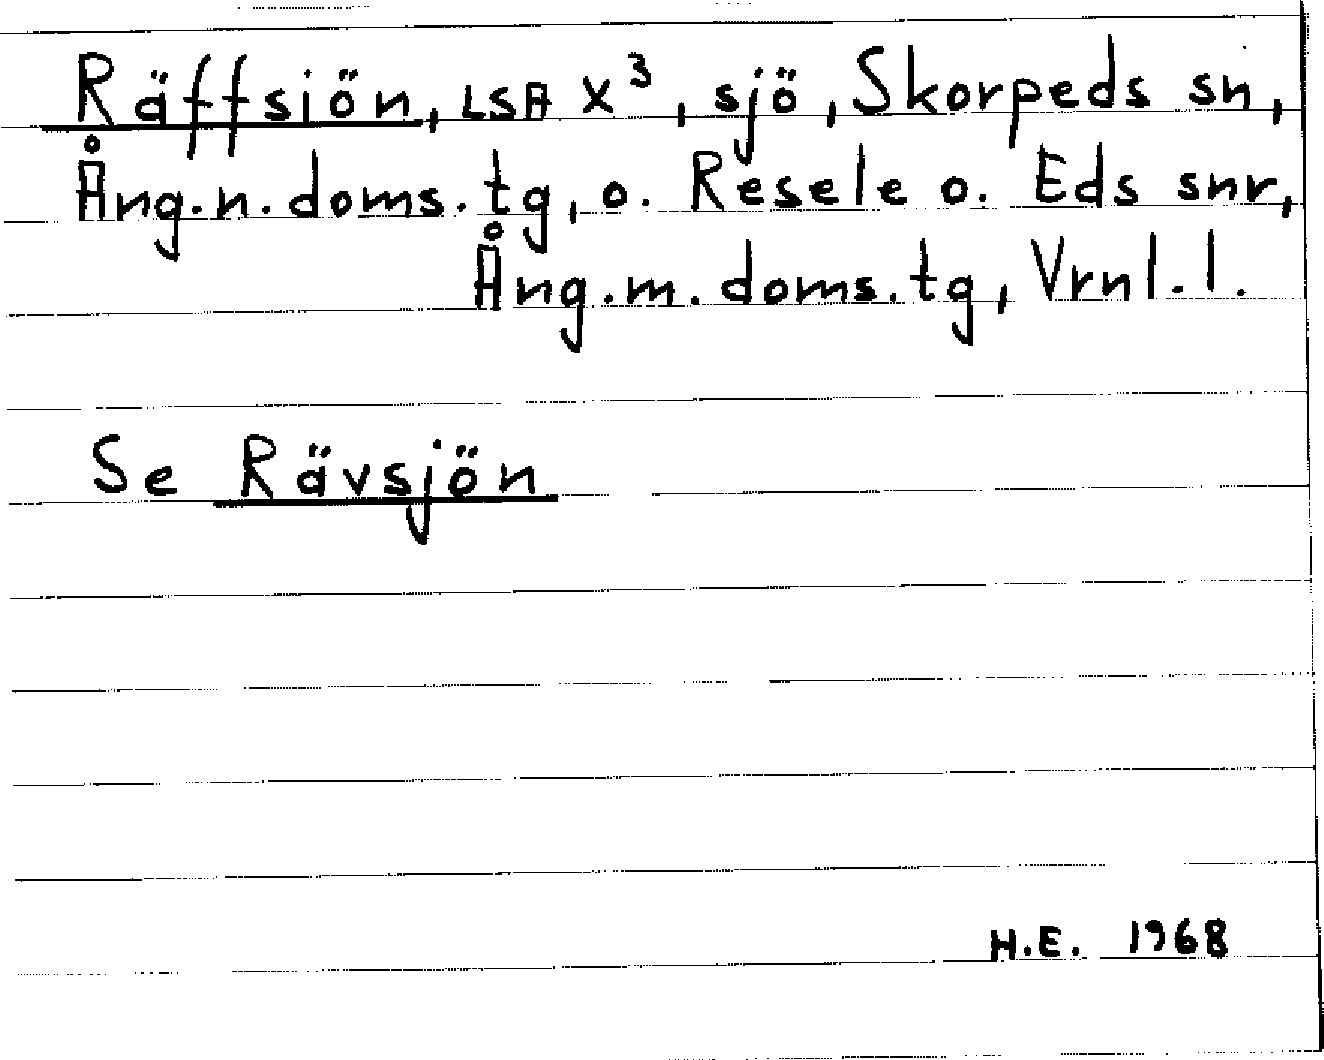 Räffsiön, LSA X³, sjö, Skorpeds sn,
Ång.n.doms.tg, o. Resele o. Eds snr,
Ång.m.doms.tg, Vrnl.l.
Se Rävsjön
H.E. 1968